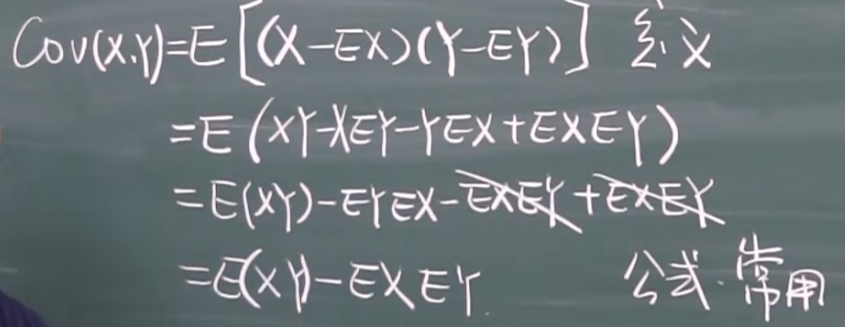 Cov(X,Y)=E[(X-EX)(Y-EY)] 定义
=E(XY-XEY-YEX+EXEY)
=E(XY)-EYEX-EXEY+EXEY
=E(XY)-EXEY. 公式.常用